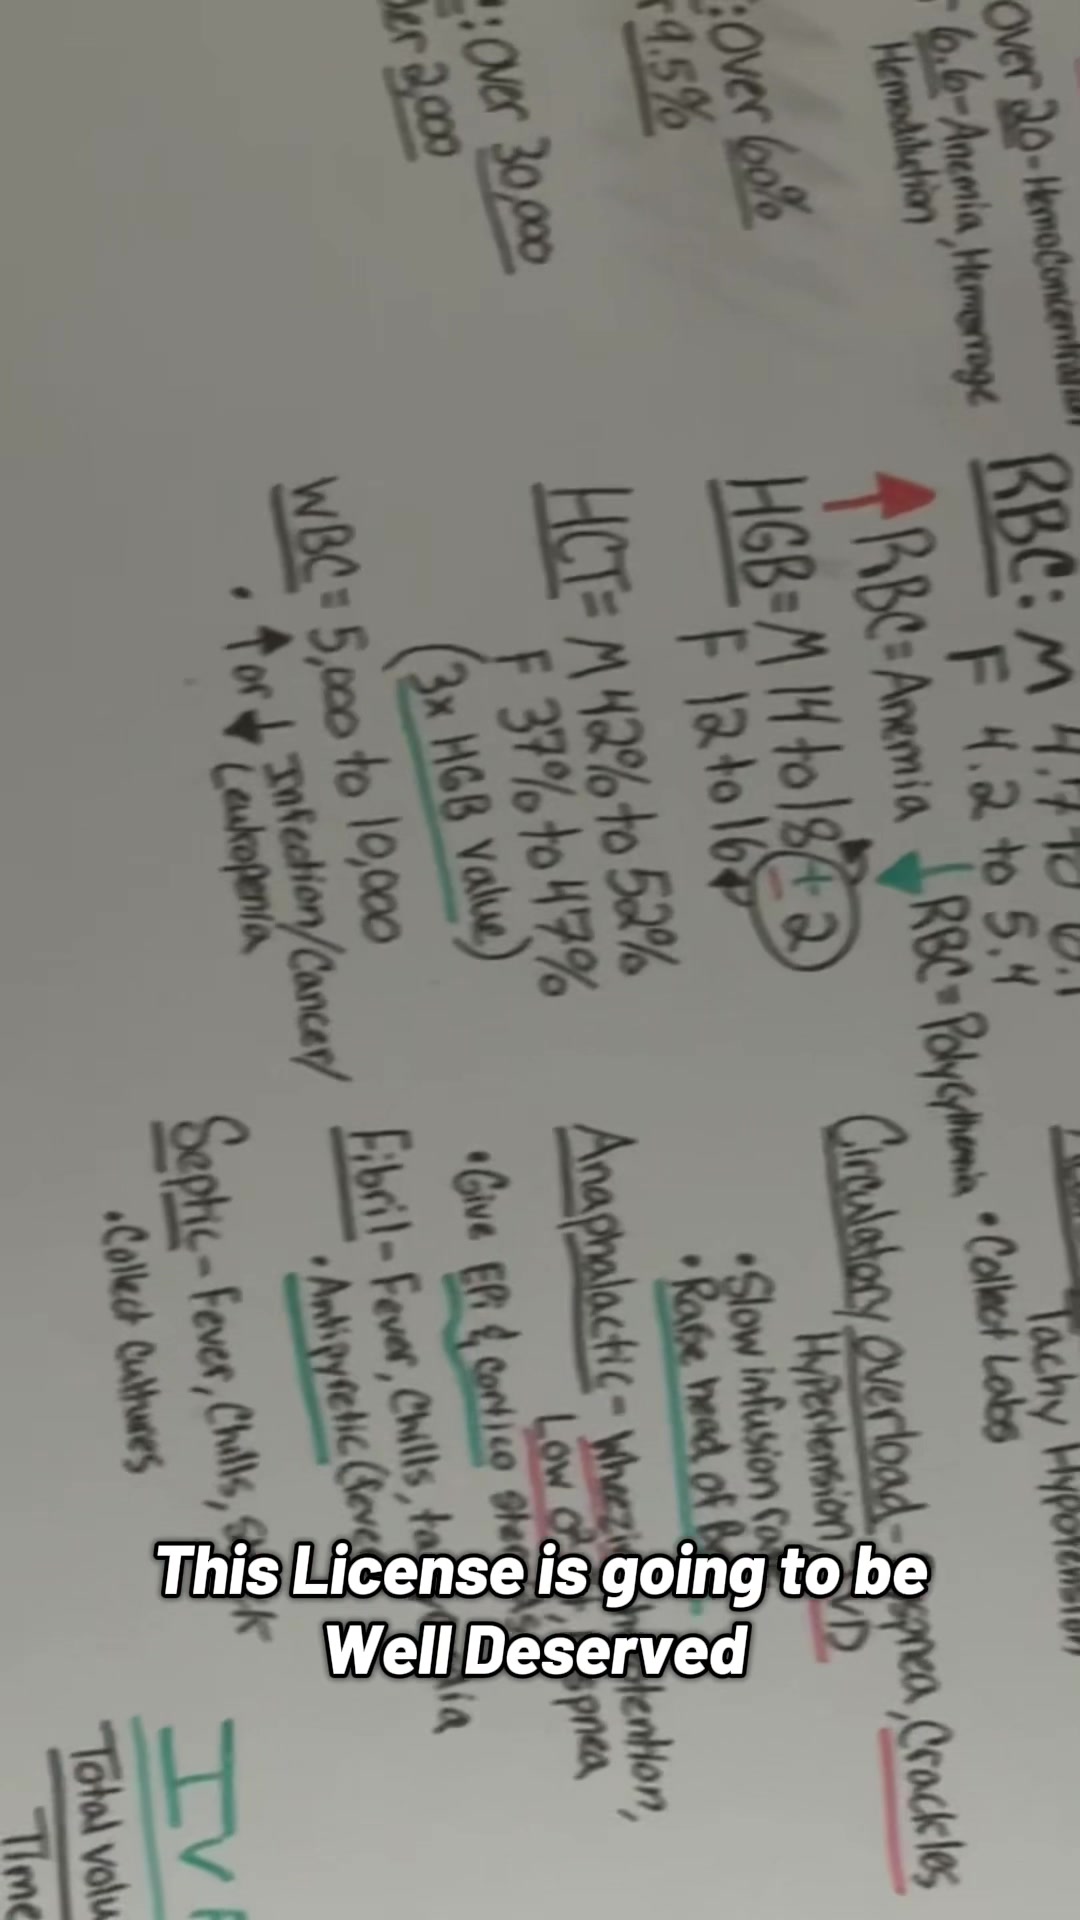 Over 20 - Hemoconcentration
6.6 - Anemia, Hemorrage
Hemodilution
: Over 60%
9.5%
: Over 30,000
2,000
RBC: M 4.7 to 6.1
F 4.2 to 5.4
RBC = Anemia
RBC = Polycythemia
HGB = M 14 to 18
F 12 to 16
+ - 2
HCT = M 42% to 52%
F 37% to 47%
(3x HGB value)
WBC = 5,000 to 10,000
• ↑ or ↓ Infection/Cancer/
Leukopenia
Tachy Hypotension
• Collect Labs
Circulatory Overload - Crackles
Hypertension
• Slow infusion
• Raise head of
Anaphalactic -
Low
• Give EPi & cortico
Fibril - Fever, Chills,
• Antipyretic
Septic - Fever, Chills,
• Collect Cultures
IV
Total
Time
This License is going to be
Well Deserved